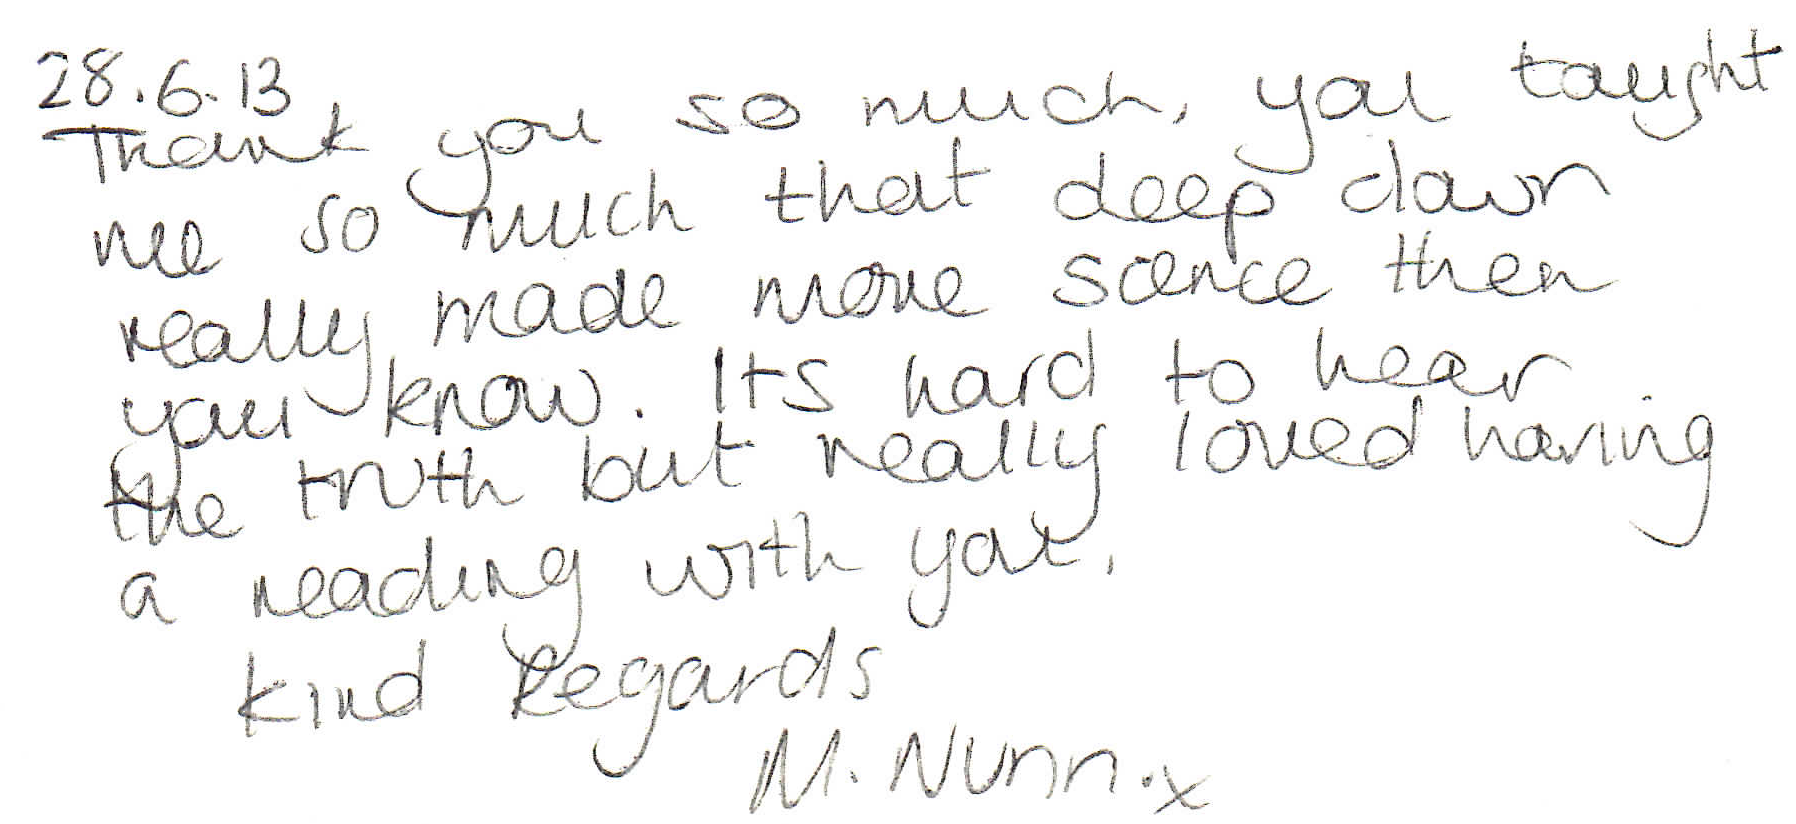 28.6.13
Thank you so much, you taught
me so much that deep down
really made more scence then
you know. Its hard to hear
the truth but really loved having
a reading with you.
Kind Regards
M. Nunn. x